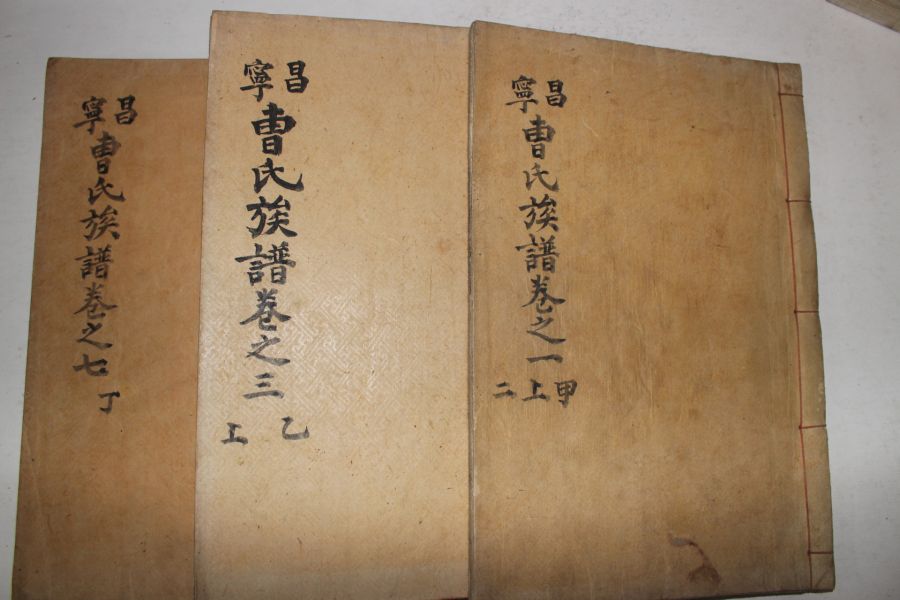 昌寧曺氏族譜卷之一
甲上二
昌寧曺氏族譜卷之三
乙上
昌寧曺氏族譜卷之七
丁